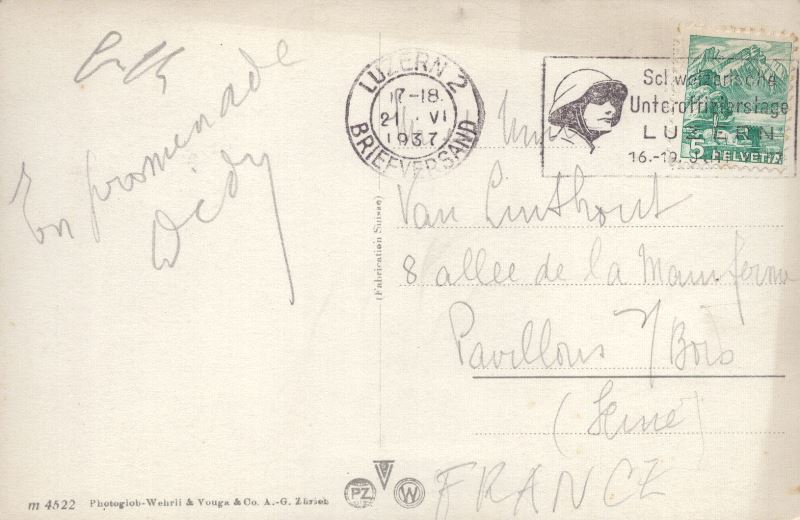 En promenade
Didy
LUZERN 2
17-18
21. VI
1937
BRIEFVERSAND
Schweizerische
Unteroffizierstage
LUZERN
16.-19.
5 HELVETIA
Van Linthout
8 allee de la
Pavillons s/Bois
(Seine)
FRANCE
(Fabrication Suisse)
m 4522 Photoglob-Wehrli & Vouga & Co. A.-G. Zürich
PZ W